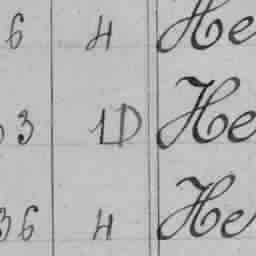 6 H He
3 1D He
36 H He